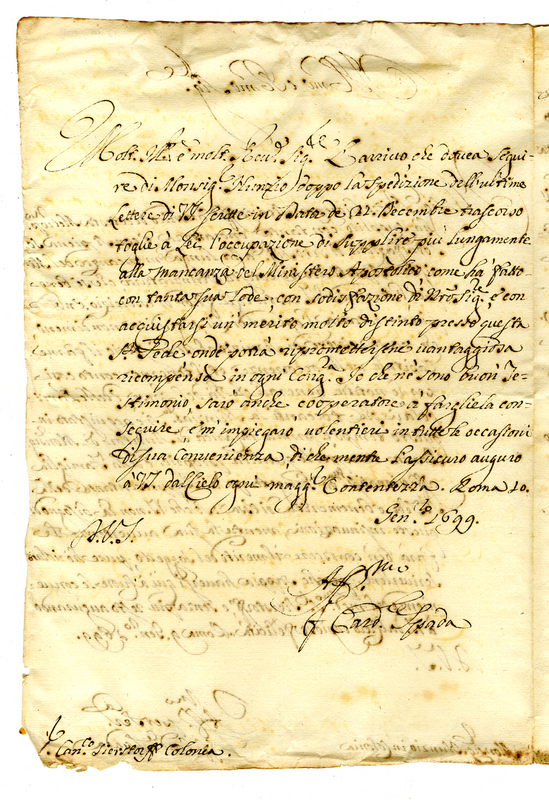 Molt. Ill.e è molt. Reu.do Sig.re L'arriuo, che douea segui-
re di Monsig. Nunzio doppo la spedizione dell'ultime
lettere di V.S. scritte in data de 21. Decembre trascorso
toglie à Lei l'occupazione di supplire più lungamente
alla mancanza del Ministero Apostolico come hà fatto
con tanta sua lode, con sodisfazione di Nro Sig.re e con
acquistarsi un merito molto distinto presso questa
S.ta Sede onde potrà ripromettersene vantaggiosa
ricompensa in ogni Cong.a Io che ne sono buon Te-
stimonio, sarò anche cooperatore a fargliela con-
seguire e m'impiegarò volentieri in tutte le occasioni
di sua convenienza, di che mentre l'assicuro auguro
à V.S. dal Cielo ogni magg.r Contentezza. Roma 10.
Gen.ro 1699.
D.V.S.
Aff.mo
F. Card.le Spada
S.r Can.co Sierstorff Colonia.